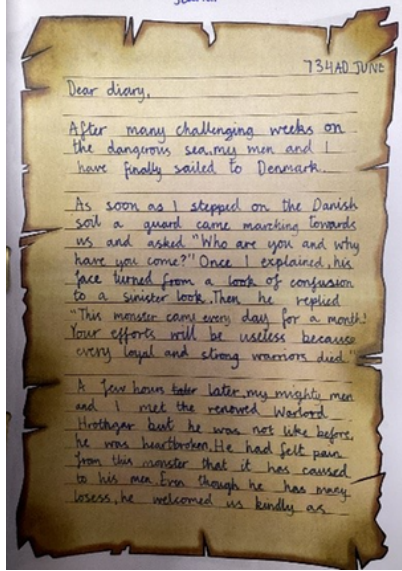 734AD JUNE
Dear diary,
After many challenging weeks on
the dangerous sea, my men and I
have finally sailed to Denmark.
As soon as I stepped on the Danish
soil a guard came marching towards
us and asked "Who are you and why
have you come?" Once I explained, his
face turned from a look of confusion
to a sinister look. Then he replied
"This monster came every day for a month!
Your efforts will be useless because
every loyal and strong warriors died."
A few hours later, my mighty men
and I met the renowed Warlord
Hrothgar but he was not like before,
he was heartbroken. He had felt pain
from this monster that it has caused
to his men. Even though he has many
losess, he welcomed us kindly as